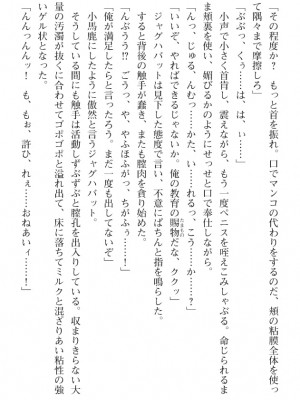 その程度か? もっと首を振れ。口でマンコの代わりをするのだ、頬の粘膜全体を使っ
て隅々まで摩擦しろ」
「ぶぷっ、くぅ……は、はい……」
小声で小さく首肯し、震えながら、もう一度ペニスを咥えこみしゃぶる。命じられるま
ま頬裏を使い、媚びるかのようにせっせと口で奉仕しながら。
「んっ、じゅる、んむっ……かた、い……れるの、こう……か……?」
「いいぞ、やればできるじゃないか。俺の教育の賜物だな、ククッ」
ジャグハバットは見下した態度で言い、不意にぱちんと指を鳴らした。
すると背後の触手が蠢き、またも膣肉を貪り始めた。
「んぶうう!? ごうっ、や、やふほぶがっ、ちがふぅ……!」
「俺が満足したらと言ったろう。まだ一度も出してないぞ」
小馬鹿にしたように傲然と言うジャグハバット。
そうしている間にも触手は活動しずぶずぶと膣孔を出入りしている。収まりきらない大
量の汚濁が抜くに合わせてゴボゴボと溢れ出て、床に落ちてミルクと混ざりあい粘性の強
いゲル状となった。
「んんっんんっ! も、もぉ、許ひ、れぇ……おねあいィ……!」